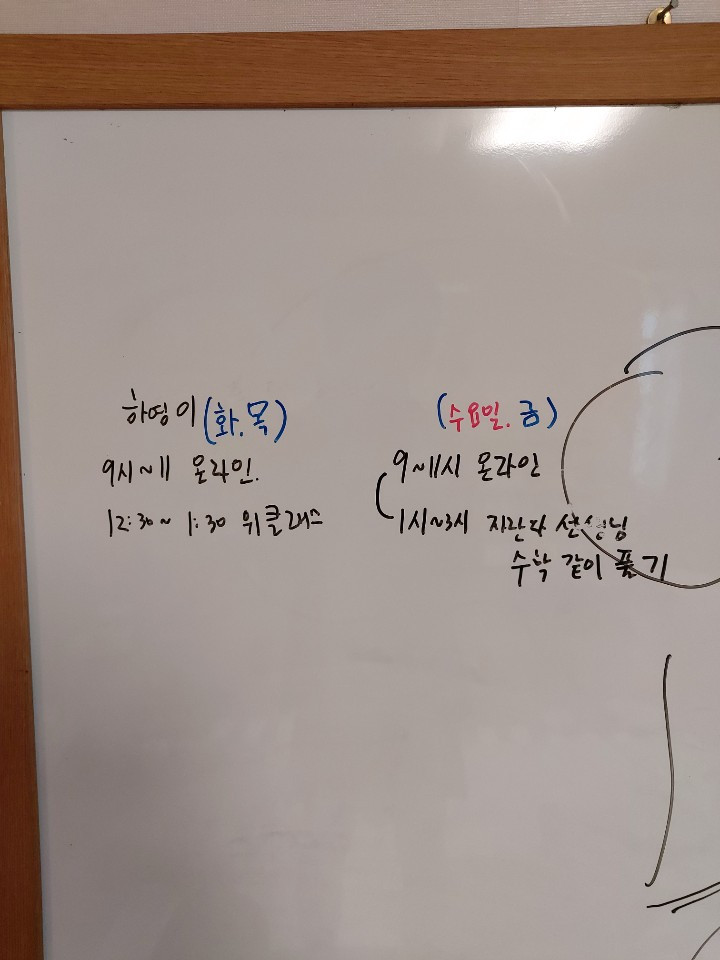 하영이 (화.목)
9시~11 온라인.
12:30~ 1:30 위클래스
(수요일. 금)
9~11시 온라인
1시~3시 지란다 선생님
수학 같이 풀기